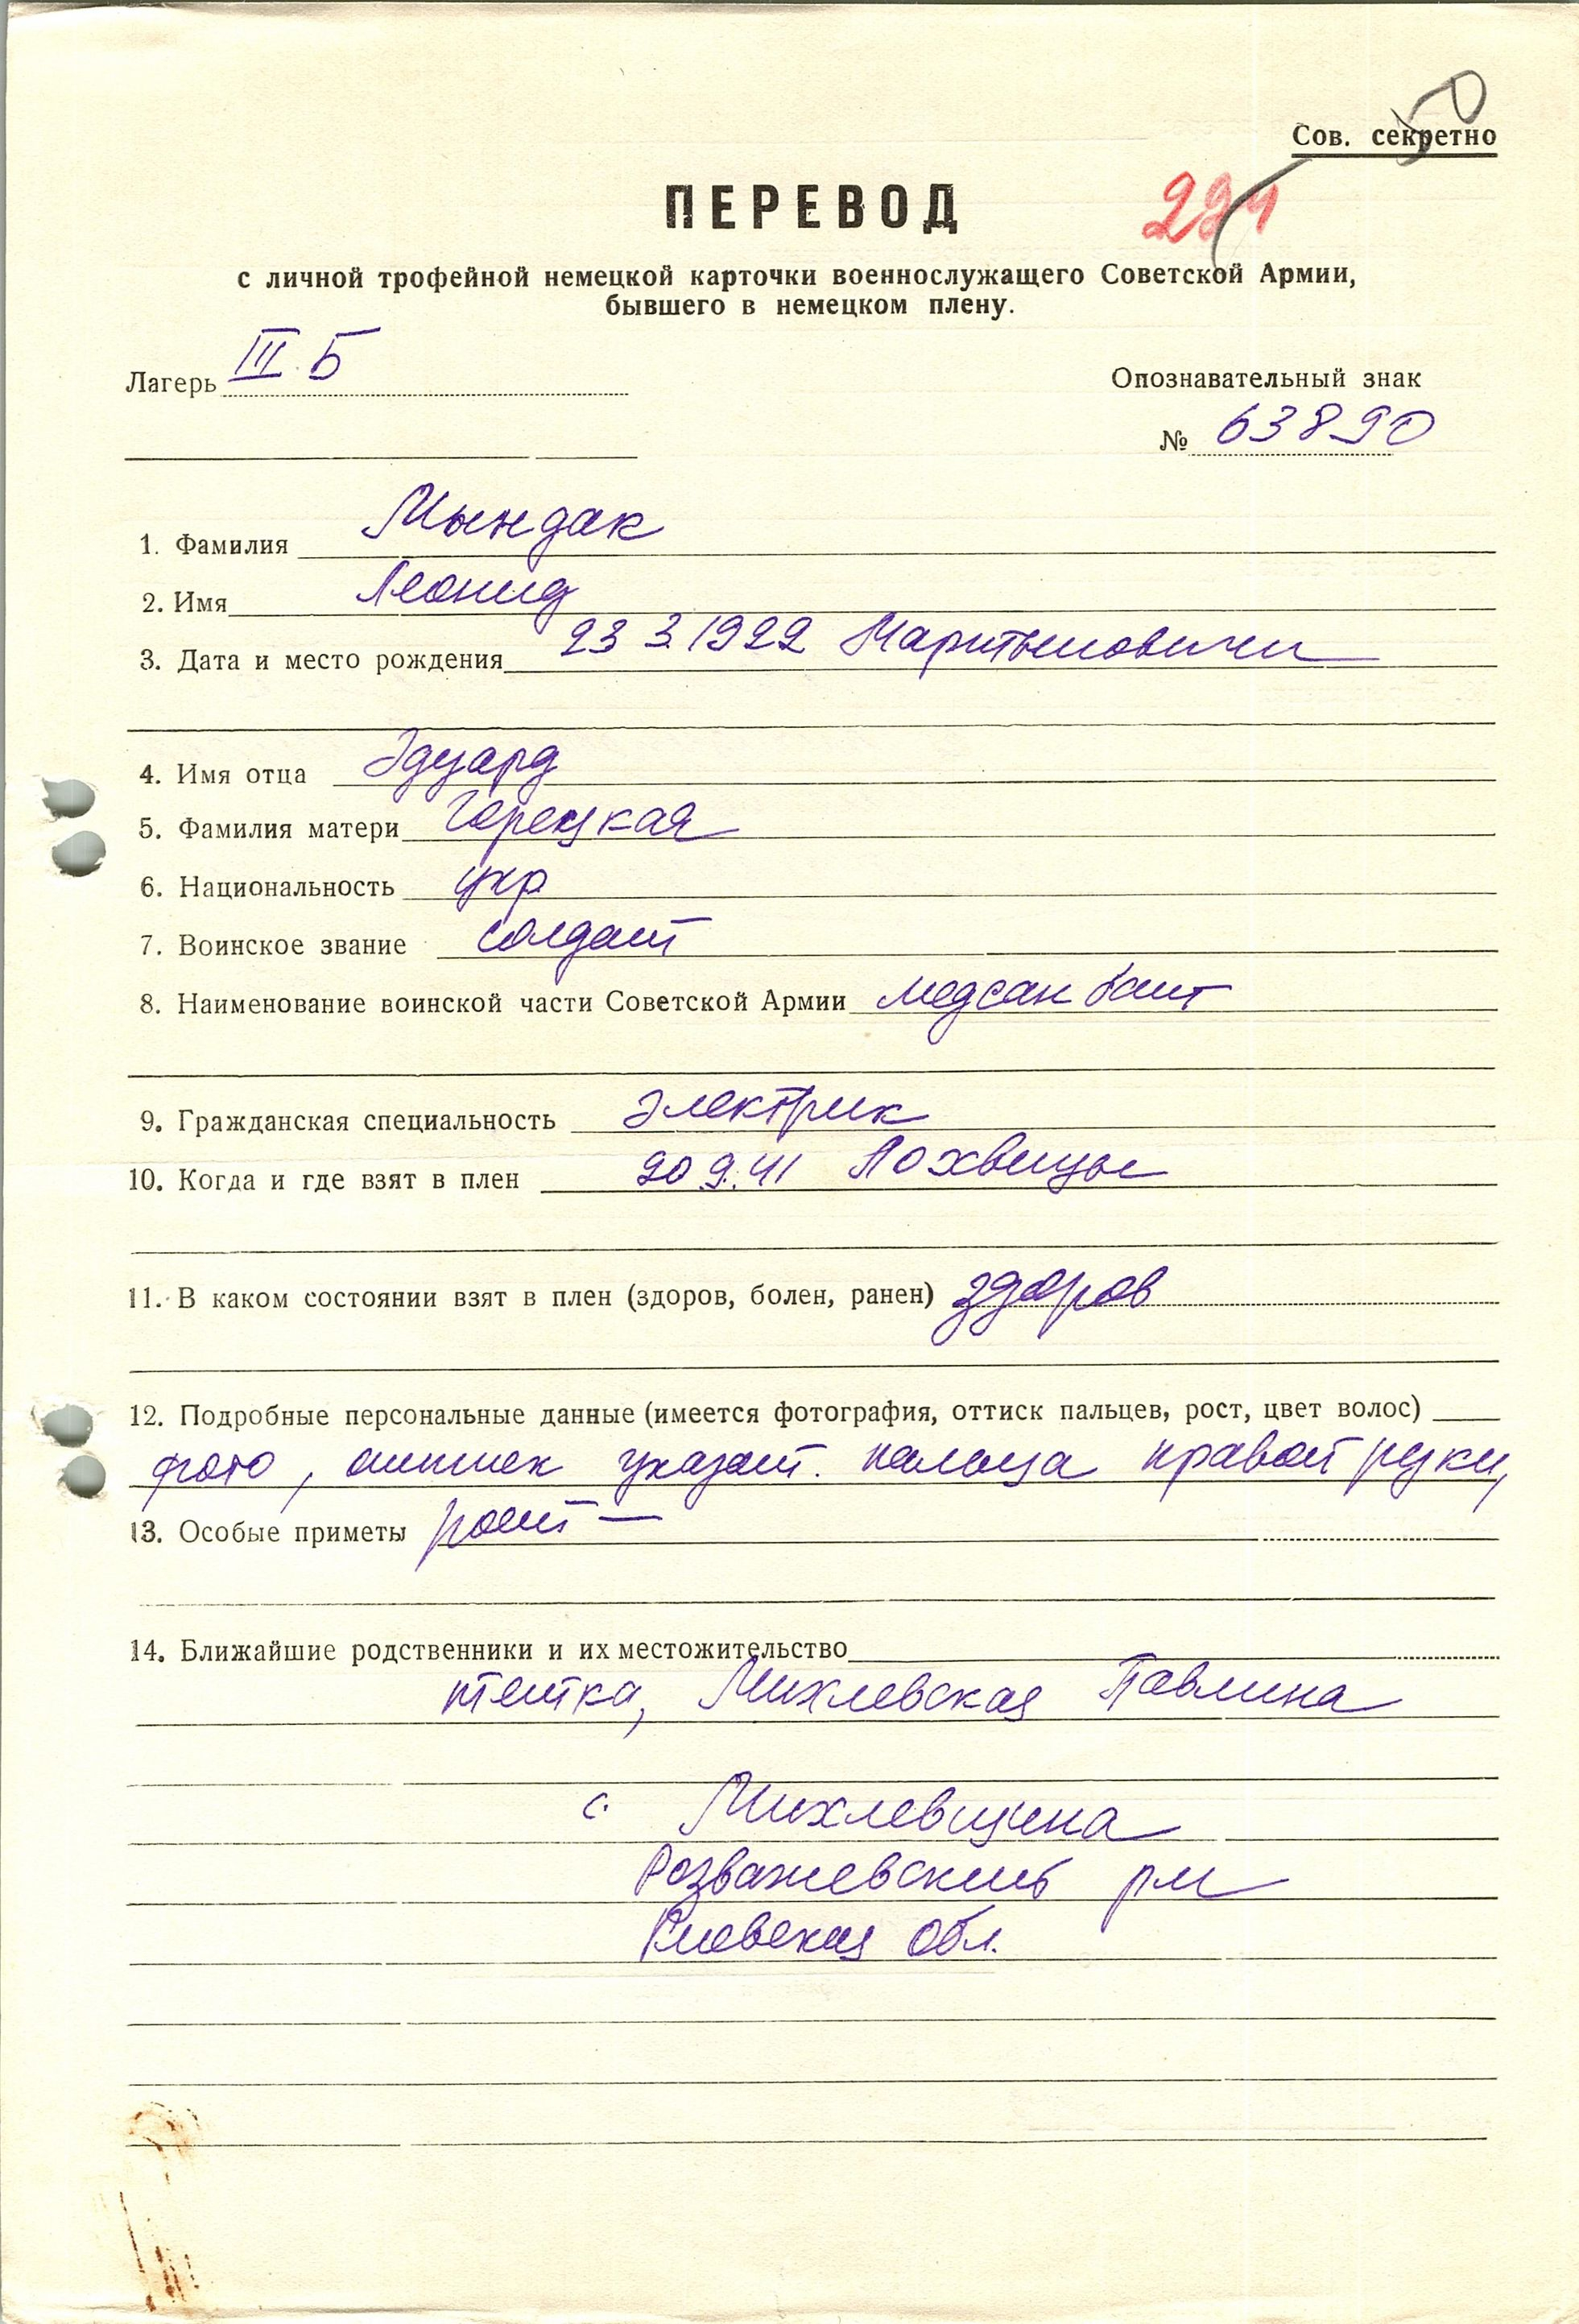 50
Сов. секретно
ПЕРЕВОД
224
с личной трофейной немецкой карточки военнослужащего Советской Армии,
бывшего в немецком плену.
Лагерь III Б
Опознавательный знак
№ 63890
1. Фамилия Мындак
2. Имя Леонид
3. Дата и место рождения 23 3.1922 Мартыновичи
4. Имя отца Эдуард
5. Фамилия матери Горецкая
6. Национальность укр
7. Воинское звание солдат
8. Наименование воинской части Советской Армии медсанбат
9. Гражданская специальность электрик
10. Когда и где взят в плен 20.9.41 Лохвицы
11. В каком состоянии взят в плен (здоров, болен, ранен) здоров
12. Подробные персональные данные (имеется фотография, оттиск пальцев, рост, цвет волос)
фото, оттиск указат. пальца правой руки,
13. Особые приметы рост —
14. Ближайшие родственники и их местожительство
тетка, Михлевская Павлина
с. Михлевщина
Розважевский
Киевская обл.